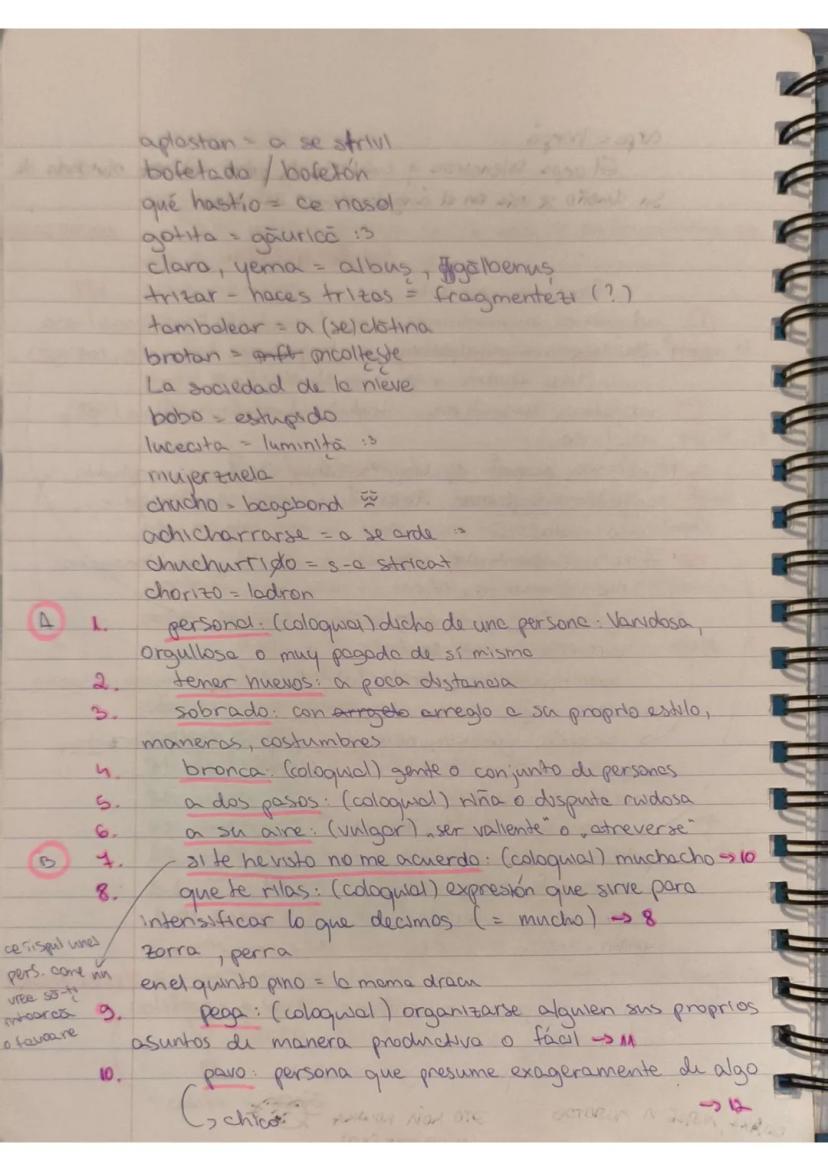 aplastan = a se strivi
bofetada / bofetón
qué hastío = ce nasol
gotita = găurică :3
clara, yema = albuș, gălbenuș
trizar - haces trizas = fragmentezi (?)
tambalear = a (se) clătina
brotan = încolțește
La sociedad de la nieve
bobo = estupido
lucecita = luminiță :3
mujerzuela
chucho = vagabond
achicharrarse = a se arde
chuchurrido = s-a stricat
chorizo = ladron
A 1. personal: (coloquial) dicho de una persona: Vanidosa,
orgullosa o muy pagada de sí misma
2. tener huevos: a poca distancia
3. sobrado: con arreglo a su proprio estilo,
maneras, costumbres
4. bronca: (coloquial) gente o conjunto de personas
5. a dos pasos: (coloquial) riña o disputa ruidosa
6. a su aire: (vulgar) „ser valiente" o „atreverse"
B 7. si te he visto no me acuerdo: (coloquial) muchacho → 10
8. que te rilas: (coloquial) expresión que sirve para
intensificar lo que decimos (= mucho) → 8
zorra, perra
en el quinto pino = la mama dracu
ce îi spui unei
pers. care nu
vrea să-ți
întoarcă
o favoare
9. pega: (coloquial) organizarse alguien sus proprios
asuntos de manera productiva o fácil → 11
10. pavo: persona que presume exageramente de algo
→ 12
↳ chico